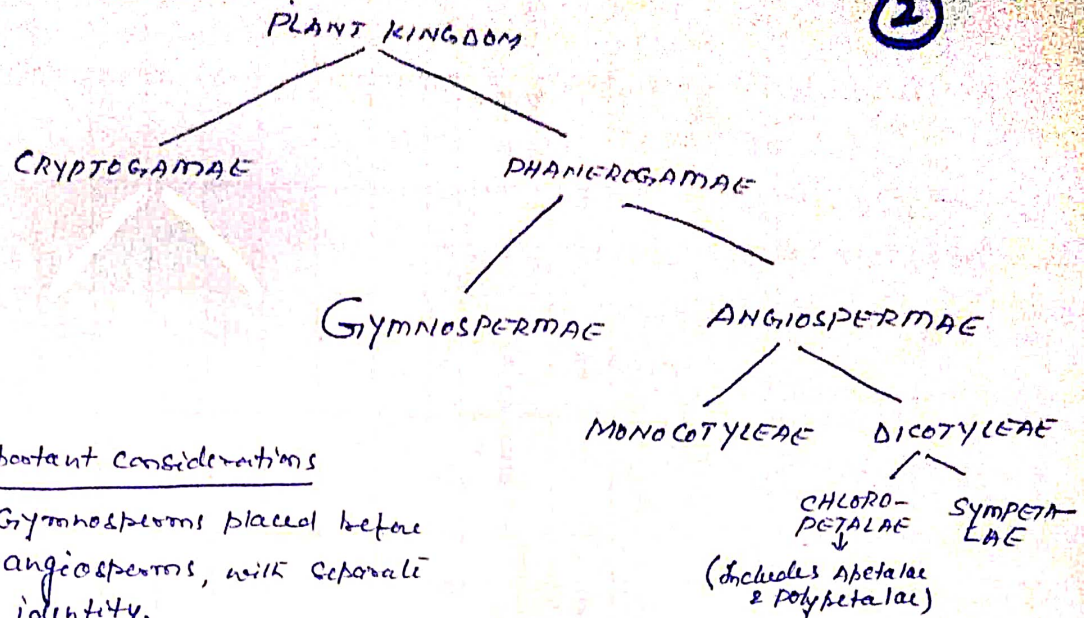 2
PLANT KINGDOM
CRYPTOGAMAE
PHANEROGAMAE
GYMNOSPERMAE
ANGIOSPERMAE
MONOCOTYLEAE
DICOTYLEAE
CHLORO-
PETALAE
SYMPETA-
LAE
(Includes Apetalae
& Polypetalae)
considerations
Gymnosperms placed before
angiosperms, with separate
identity.